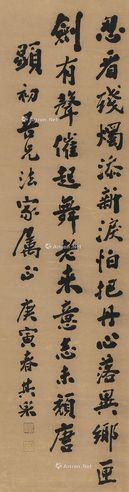 忍看残燭添新淚怕把丹心落異鄉匣
劍有聲催起舞老來意志未頹唐
顯初吾兄法家屬正 庚寅春其采